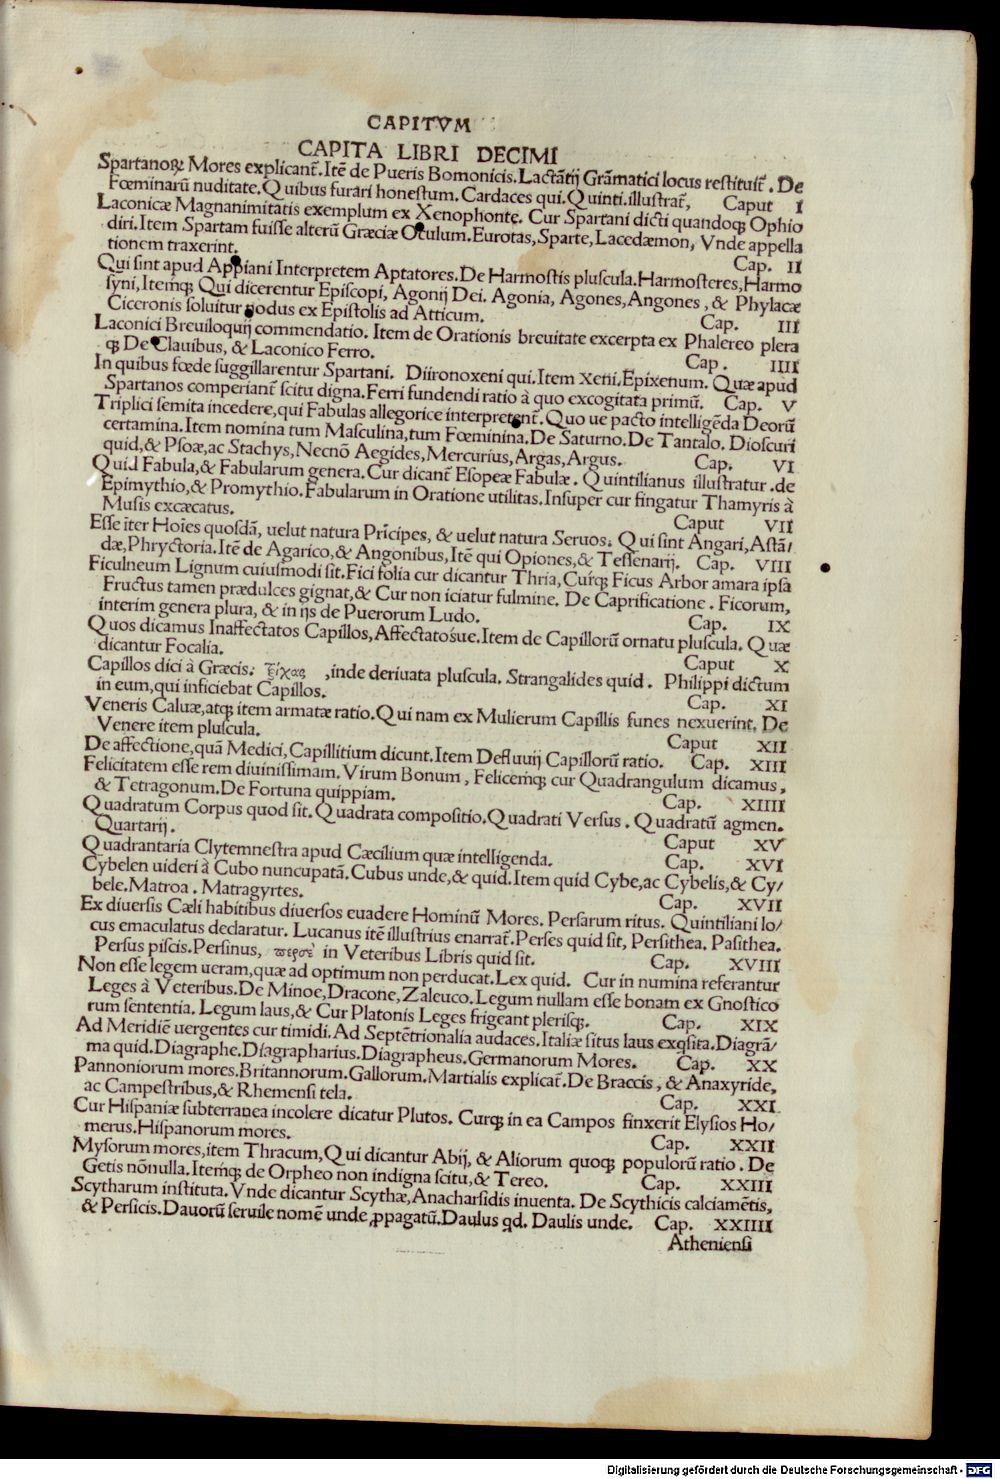 CAPITVM
CAPITA LIBRI DECIMI
Spartanoꝝ Mores explicant᷒. Itē de Pueris Bomonicis. Lactātij Grāmatici locus restituit᷒. De
Fœminarū nuditate. Quibus furari honestum. Cardaces qui. Quinti. illustrat᷒, Caput I
Laconicæ Magnanimitatis exemplum ex Xenophonte. Cur Spartani dicti quandoqꝫ Ophio
diri. Item Spartam fuisse alterū Græciæ Oculum. Eurotas, Sparte, Lacedæmon, Vnde appella
tionem traxerint. Cap. II
Qui sint apud Appiani Interpretem Aptatores. De Harmostis pluscula. Harmosteres, Harmo
syni, Itemqꝫ Qui dicerentur Episcopi, Agonij Dei. Agonia, Agones, Angones, & Phylacæ
Ciceronis soluitur nodus ex Epistolis ad Atticum. Cap. III
Laconici Breuiloquij commendatio. Item de Orationis breuitate excerpta ex Phalereo plera
qꝫ De Clauibus, & Laconico Ferro. Cap. IIII
In quibus fœde suggillarentur Spartani. Diironoxeni qui. Item Xeni, Epixenum. Quæ apud
Spartanos comperiant᷒ scitu digna. Ferri fundendi ratio à quo excogitata primū. Cap. V
Triplici semita incedere, qui Fabulas allegorice interpretent᷒. Quo ue pacto intelligēda Deorū
certamina. Item nomina tum Masculina, tum Fœminina. De Saturno. De Tantalo. Dioscuri
quid, & Psoæ, ac Stachys, Necnō Aegides, Mercurius, Argas, Argus. Cap. VI
Quid Fabula, & Fabularum genera. Cur dicant᷒ Esopeæ Fabulæ. Quintilianus illustratur. de
Epimythio, & Promythio. Fabularum in Oratione utilitas. Insuper cur fingatur Thamyris à
Musis excæcatus. Caput VII
Esse iter Hoīes quosdā, uelut natura Prīcipes, & uelut natura Seruos. Qui sint Angari, Astā/
dæ, Phryctoria. Itē de Agarico, & Angonibus, Itē qui Opiones, & Tessenarij. Cap. VIII
Ficulneum Lignum cuiusmodi sit. Fici folia cur dicantur Thria, Curqꝫ Ficus Arbor amara ipsa
Fructus tamen prædulces gignat, & Cur non iciatur fulmine. De Caprificatione. Ficorum,
interim genera plura, & in ijs de Puerorum Ludo. Cap. IX
Quos dicamus Inaffectatos Capillos, Affectatosue. Item de Capillorū ornatu pluscula. Quæ
dicantur Focalia. Caput X
Capillos dici à Græcis. τρίχας, inde deriuata pluscula. Strangalides quid. Philippi dictum
in eum, qui inficiebat Capillos. Cap. XI
Veneris Caluæ, atqꝫ item armatæ ratio. Qui nam ex Mulierum Capillis funes nexuerint. De
Venere item pluscula. Caput XII
De affectione, quā Medici, Capillitium dicunt. Item Defluuij Capillorū ratio. Cap. XIII
Felicitatem esse rem diuinissimam. Virum Bonum, Felicemqꝫ cur Quadrangulum dicamus,
& Tetragonum. De Fortuna quippiam. Cap. XIIII
Quadratum Corpus quod sit. Quadrata compositio. Quadrati Versus. Quadratū agmen.
Quartarij. Caput XV
Quadrantaria Clytemnestra apud Cæcilium quæ intelligenda. Cap. XVI
Cybelen uideri à Cubo nuncupatā. Cubus unde, & quid. Item quid Cybe, ac Cybelis, & Cy/
bele. Matroa. Matragyrtes. Cap. XVII
Ex diuersis Cæli habitibus diuersos euadere Hominū Mores. Persarum ritus. Quintiliani lo/
cus emaculatus declaratur. Lucanus itē illustrius enarrat᷒. Perses quid sit, Persithea. Pasithea.
Persus piscis. Persinus, in Veteribus Libris quid sit. Cap. XVIII
Non esse legem ueram, quæ ad optimum non perducat. Lex quid. Cur in numina referantur
Leges à Veteribus. De Minoe, Dracone, Zaleuco. Legum nullam esse bonam ex Gnostico
rum sententia. Legum laus, & Cur Platonis Leges frigeant plerisqꝫ. Cap. XIX
Ad Meridiē uergentes cur timidi. Ad Septētrionalia audaces. Italiæ situs laus exqsita. Diagrā/
ma quid. Diagraphe. Diagrapharius. Diagrapheus. Germanorum Mores. Cap. XX
Pannoniorum mores. Britannorum. Gallorum. Martialis explicat᷒. De Braccis, & Anaxyride,
ac Campestribus, & Rhemensi tela. Cap. XXI
Cur Hispaniæ subterranea incolere dicatur Plutos. Curqꝫ in ea Campos finxerit Elysios Ho/
merus. Hispanorum mores. Cap. XXII
Mysorum mores, item Thracum, Qui dicantur Abij, & Aliorum quoqꝫ populorū ratio. De
Getis nōnulla. Itemqꝫ de Orpheo non indigna scitu, & Tereo. Cap. XXIII
Scytharum instituta. Vnde dicantur Scythæ, Anacharsidis inuenta. De Scythicis calciamētis,
& Persicis. Dauorū seruile nomē unde ꝓpagatū. Daulus qd. Daulis unde. Cap. XXIIII
Atheniensi
Digitalisierung gefördert durch die Deutsche Forschungsgemeinschaft - DFG